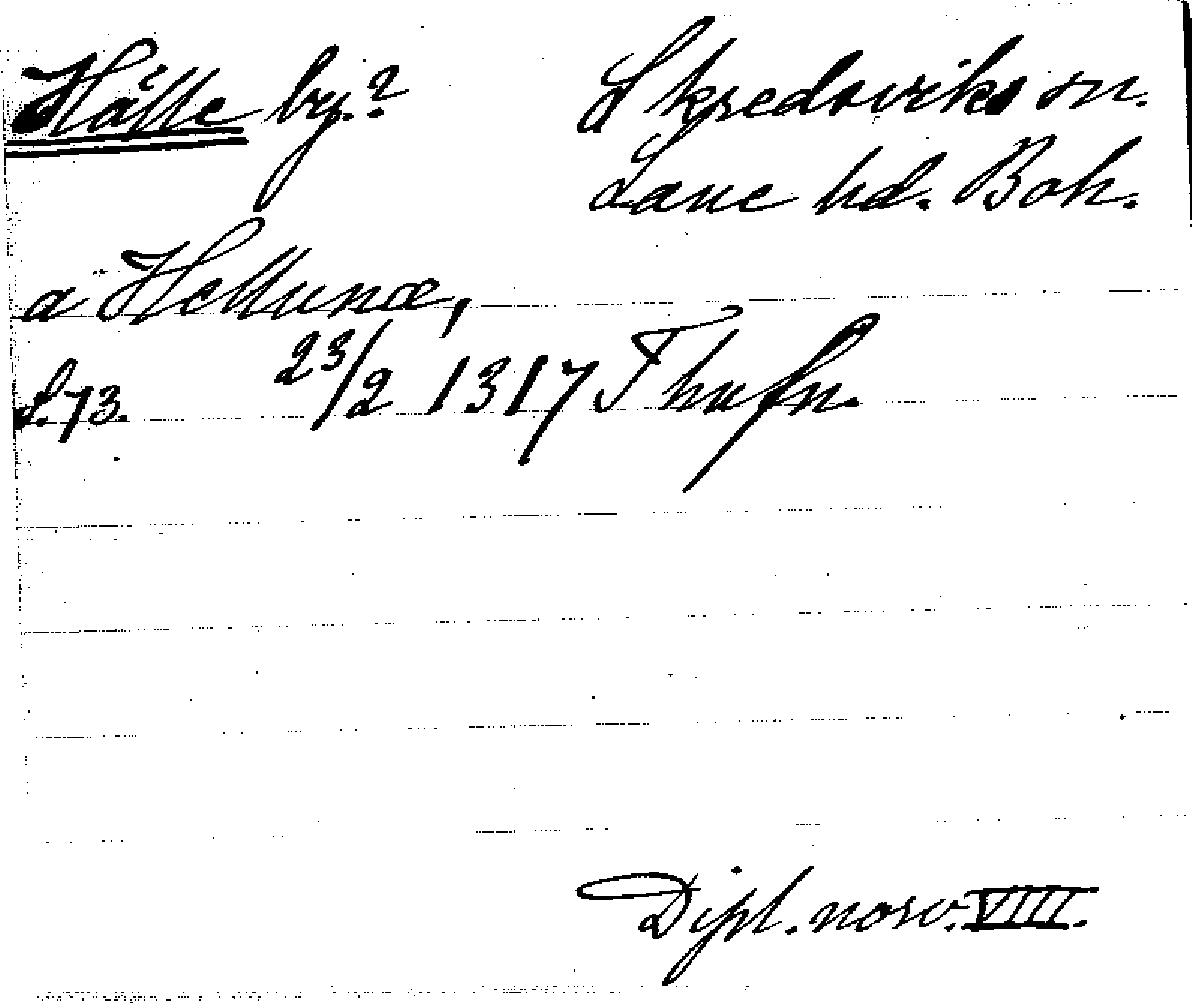 Hälle by.? Skredsviks sn.
Lane hd. Boh.
a Hellunæ,
s. 73. 23/2 1317 Thufn.
Dipl. norv. VIII.